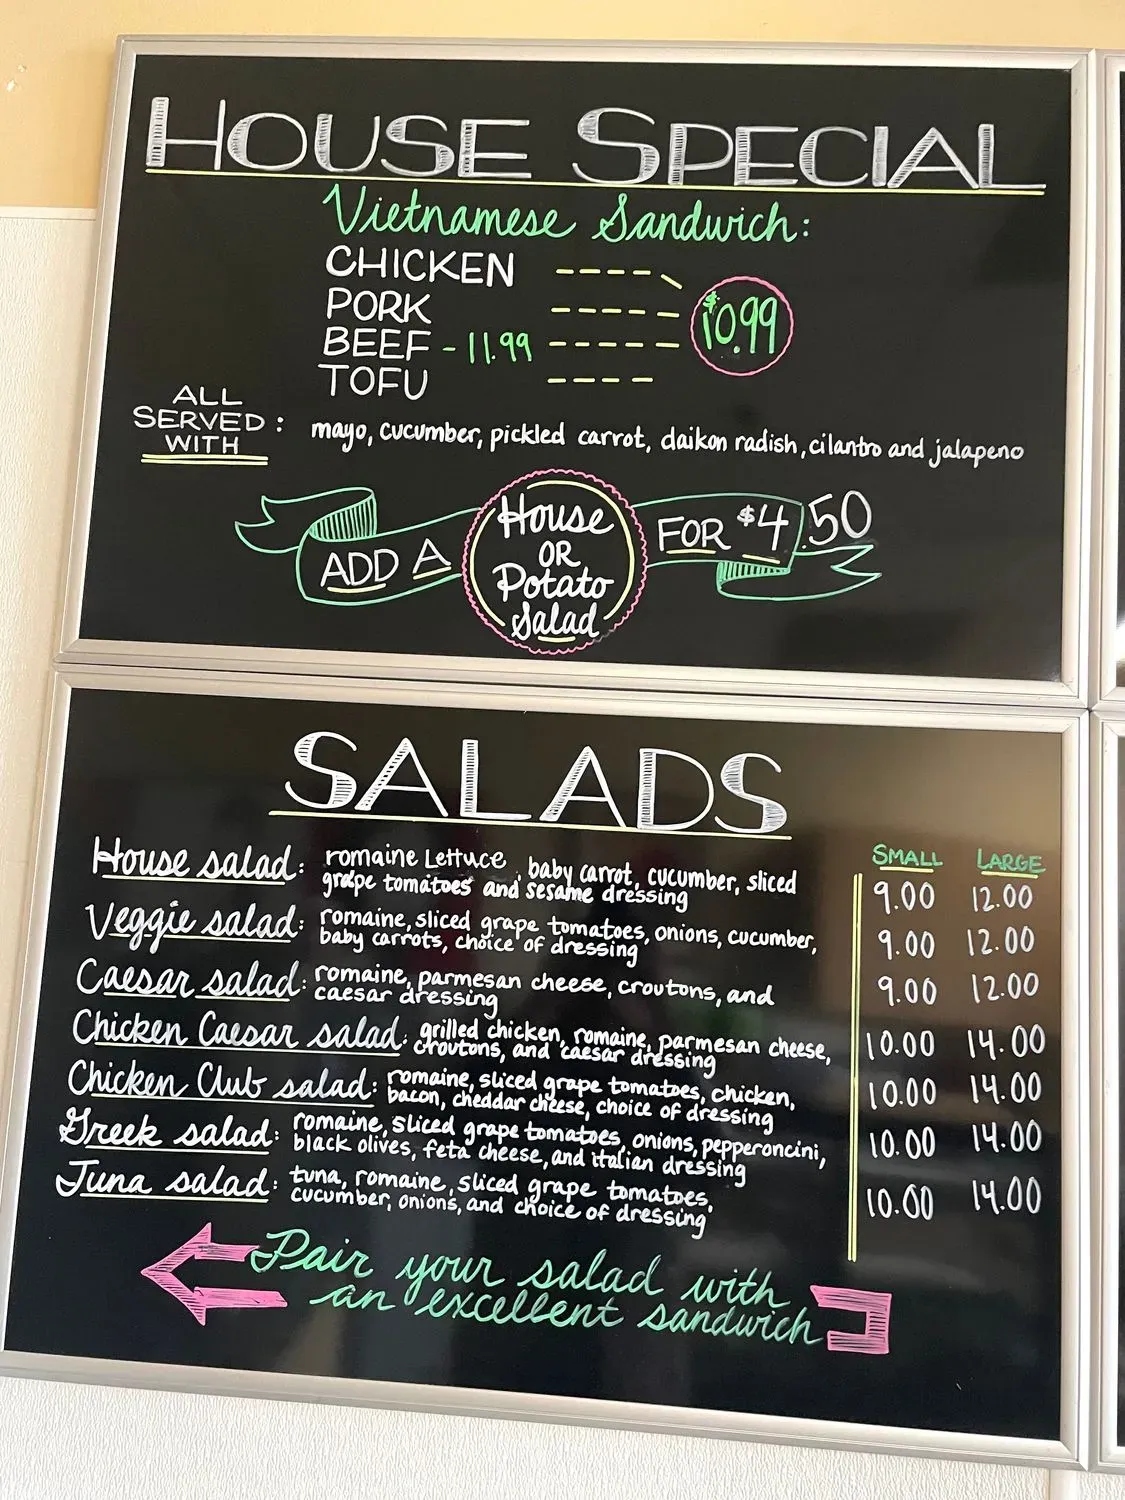 HOUSE SPECIAL
Vietnamese Sandwich:
CHICKEN
PORK
BEEF - 11.99
TOFU
$10.99
ALL
SERVED :
WITH
mayo, cucumber, pickled carrot, daikon radish, cilantro and jalapeno
ADD A
House
OR
Potato
Salad
FOR $4.50
SALADS
SMALL LARGE
House salad: romaine Lettuce, baby carrot, cucumber, sliced
grape tomatoes and sesame dressing
9.00 12.00
Veggie salad: romaine, sliced grape tomatoes, onions, cucumber,
baby carrots, choice of dressing
9.00 12.00
Caesar salad: romaine, parmesan cheese, croutons, and
caesar dressing
9.00 12.00
Chicken Caesar salad: grilled chicken, romaine, parmesan cheese,
croutons, and caesar dressing
10.00 14.00
Chicken Club salad: romaine, sliced grape tomatoes, chicken,
bacon, cheddar cheese, choice of dressing
10.00 14.00
Greek salad: romaine, sliced grape tomatoes, onions, pepperoncini,
black olives, feta cheese, and italian dressing
10.00 14.00
Tuna salad: tuna, romaine, sliced grape tomatoes,
cucumber, onions, and choice of dressing
10.00 14.00
Pair your salad with
an excellent sandwich